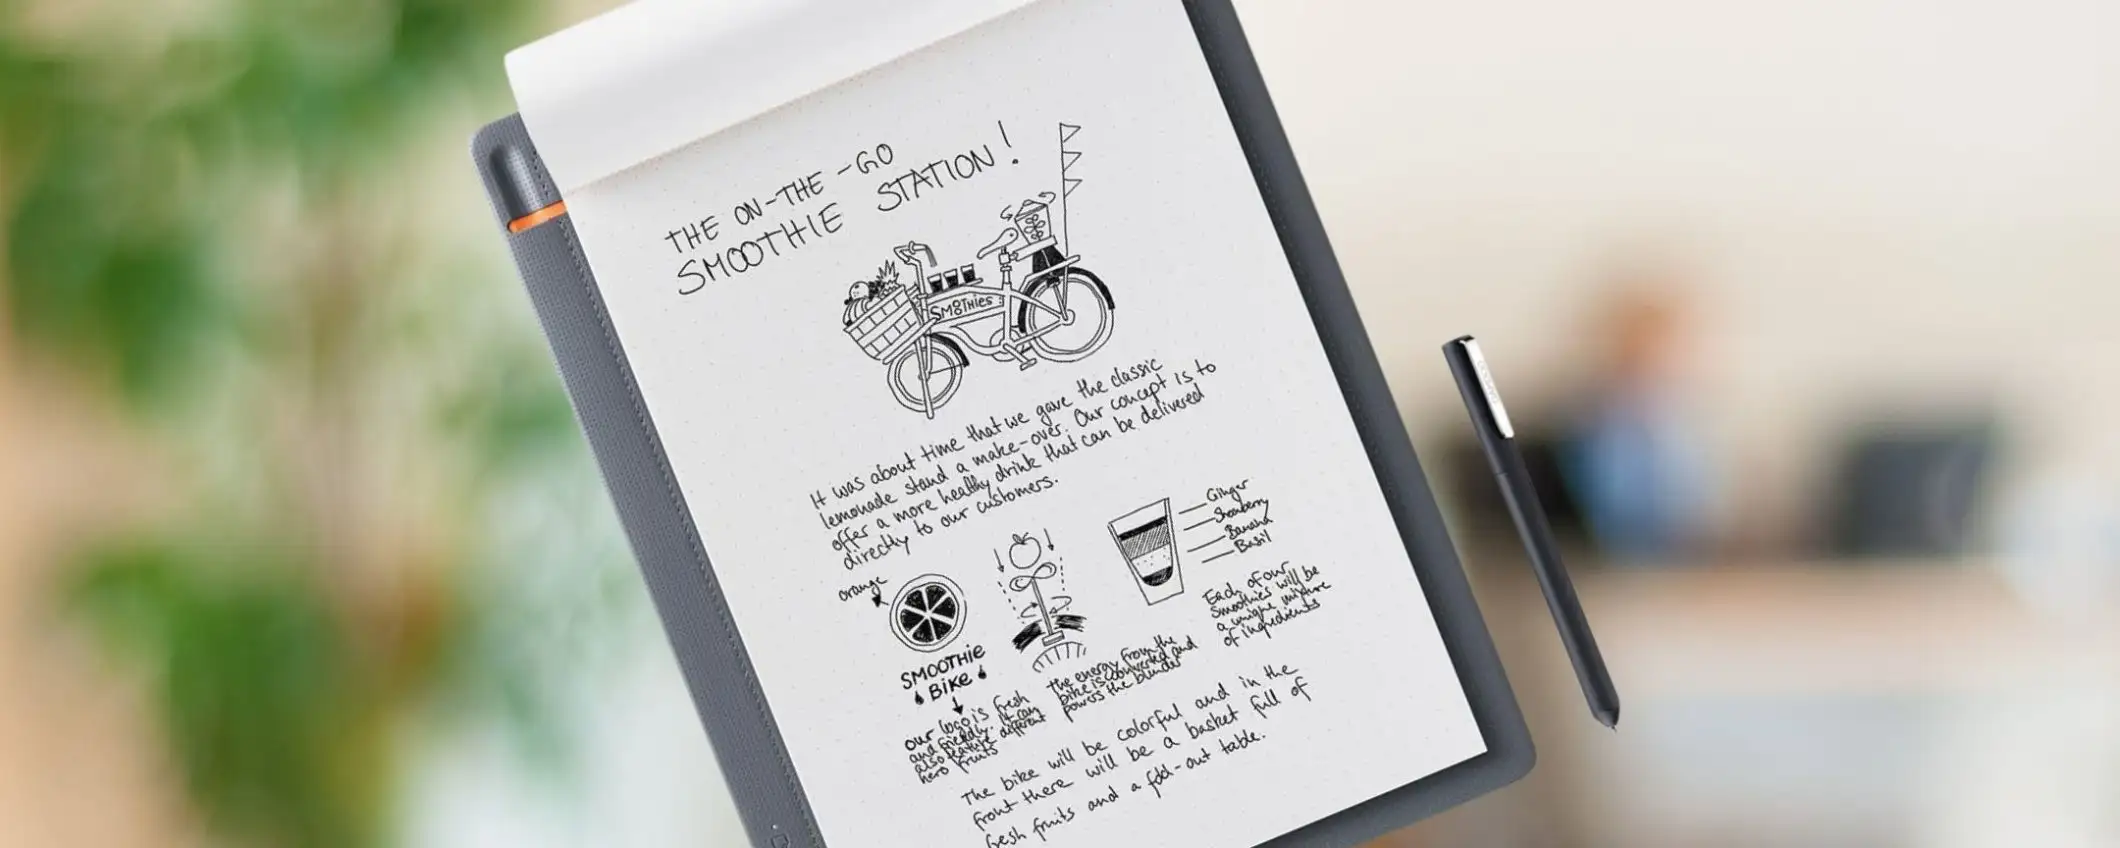 THE ON-THE-GO
SMOOTHIE STATION!
SMOOTHIES
It was about time that we gave the classic
lemonade stand a make-over. Our concept is to
offer a more healthy drink that can be delivered
directly to our customers.
orange
SMOOTHIE
BIKE
our logo is fresh
and friendly. It can
also feature different
hero fruits
the energy from the
bike is converted and
powers the blender
Ginger
Strawberry
Banana
Basil
Each of our
smoothies will be
a unique mixture
of ingredients
The bike will be colorful and in the
front there will be a basket full of
fresh fruits and a fold-out table.